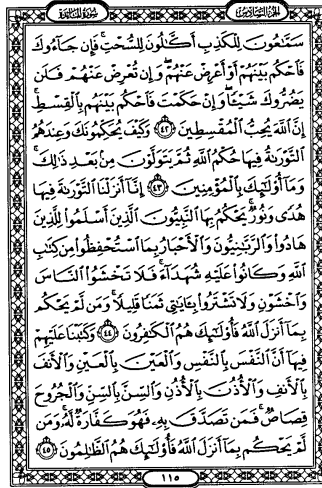 سُورَةُ المَائِدَةِ
الجُزْءُ السَّادِسُ
سَمَّٰعُونَ لِلْكَذِبِ أَكَّٰلُونَ لِلسُّحْتِ ۚ فَإِن جَآءُوكَ
فَٱحْكُم بَيْنَهُمْ أَوْ أَعْرِضْ عَنْهُمْ ۖ وَإِن تُعْرِضْ عَنْهُمْ فَلَن
يَضُرُّوكَ شَيْـًٔا ۖ وَإِنْ حَكَمْتَ فَٱحْكُم بَيْنَهُم بِٱلْقِسْطِ ۚ
إِنَّ ٱللَّهَ يُحِبُّ ٱلْمُقْسِطِينَ ٤٢ وَكَيْفَ يُحَكِّمُونَكَ وَعِندَهُمُ
ٱلتَّوْرَىٰةُ فِيهَا حُكْمُ ٱللَّهِ ثُمَّ يَتَوَلَّوْنَ مِنۢ بَعْدِ ذَٰلِكَ ۚ
وَمَآ أُو۟لَٰٓئِكَ بِٱلْمُؤْمِنِينَ ٤٣ إِنَّآ أَنزَلْنَا ٱلتَّوْرَىٰةَ فِيهَا
هُدًى وَنُورٌ ۚ يَحْكُمُ بِهَا ٱلنَّبِيُّونَ ٱلَّذِينَ أَسْلَمُوا۟ لِلَّذِينَ
هَادُوا۟ وَٱلرَّبَّٰنِيُّونَ وَٱلْأَحْبَارُ بِمَا ٱسْتُحْفِظُوا۟ مِن كِتَٰبِ
ٱللَّهِ وَكَانُوا۟ عَلَيْهِ شُهَدَآءَ ۚ فَلَا تَخْشَوُا۟ ٱلنَّاسَ
وَٱخْشَوْنِ وَلَا تَشْتَرُوا۟ بِـَٔايَٰتِى ثَمَنًا قَلِيلًا ۚ وَمَن لَّمْ يَحْكُم
بِمَآ أَنزَلَ ٱللَّهُ فَأُو۟لَٰٓئِكَ هُمُ ٱلْكَٰفِرُونَ ٤٤ وَكَتَبْنَا عَلَيْهِمْ
فِيهَآ أَنَّ ٱلنَّفْسَ بِٱلنَّفْسِ وَٱلْعَيْنَ بِٱلْعَيْنِ وَٱلْأَنفَ
بِٱلْأَنفِ وَٱلْأُذُنَ بِٱلْأُذُنِ وَٱلسِّنَّ بِٱلسِّنِّ وَٱلْجُرُوحَ
قِصَاصٌ ۚ فَمَن تَصَدَّقَ بِهِۦ فَهُوَ كَفَّارَةٌ لَّهُۥ ۚ وَمَن
لَّمْ يَحْكُم بِمَآ أَنزَلَ ٱللَّهُ فَأُو۟لَٰٓئِكَ هُمُ ٱلظَّٰلِمُونَ ٤٥
١١٥